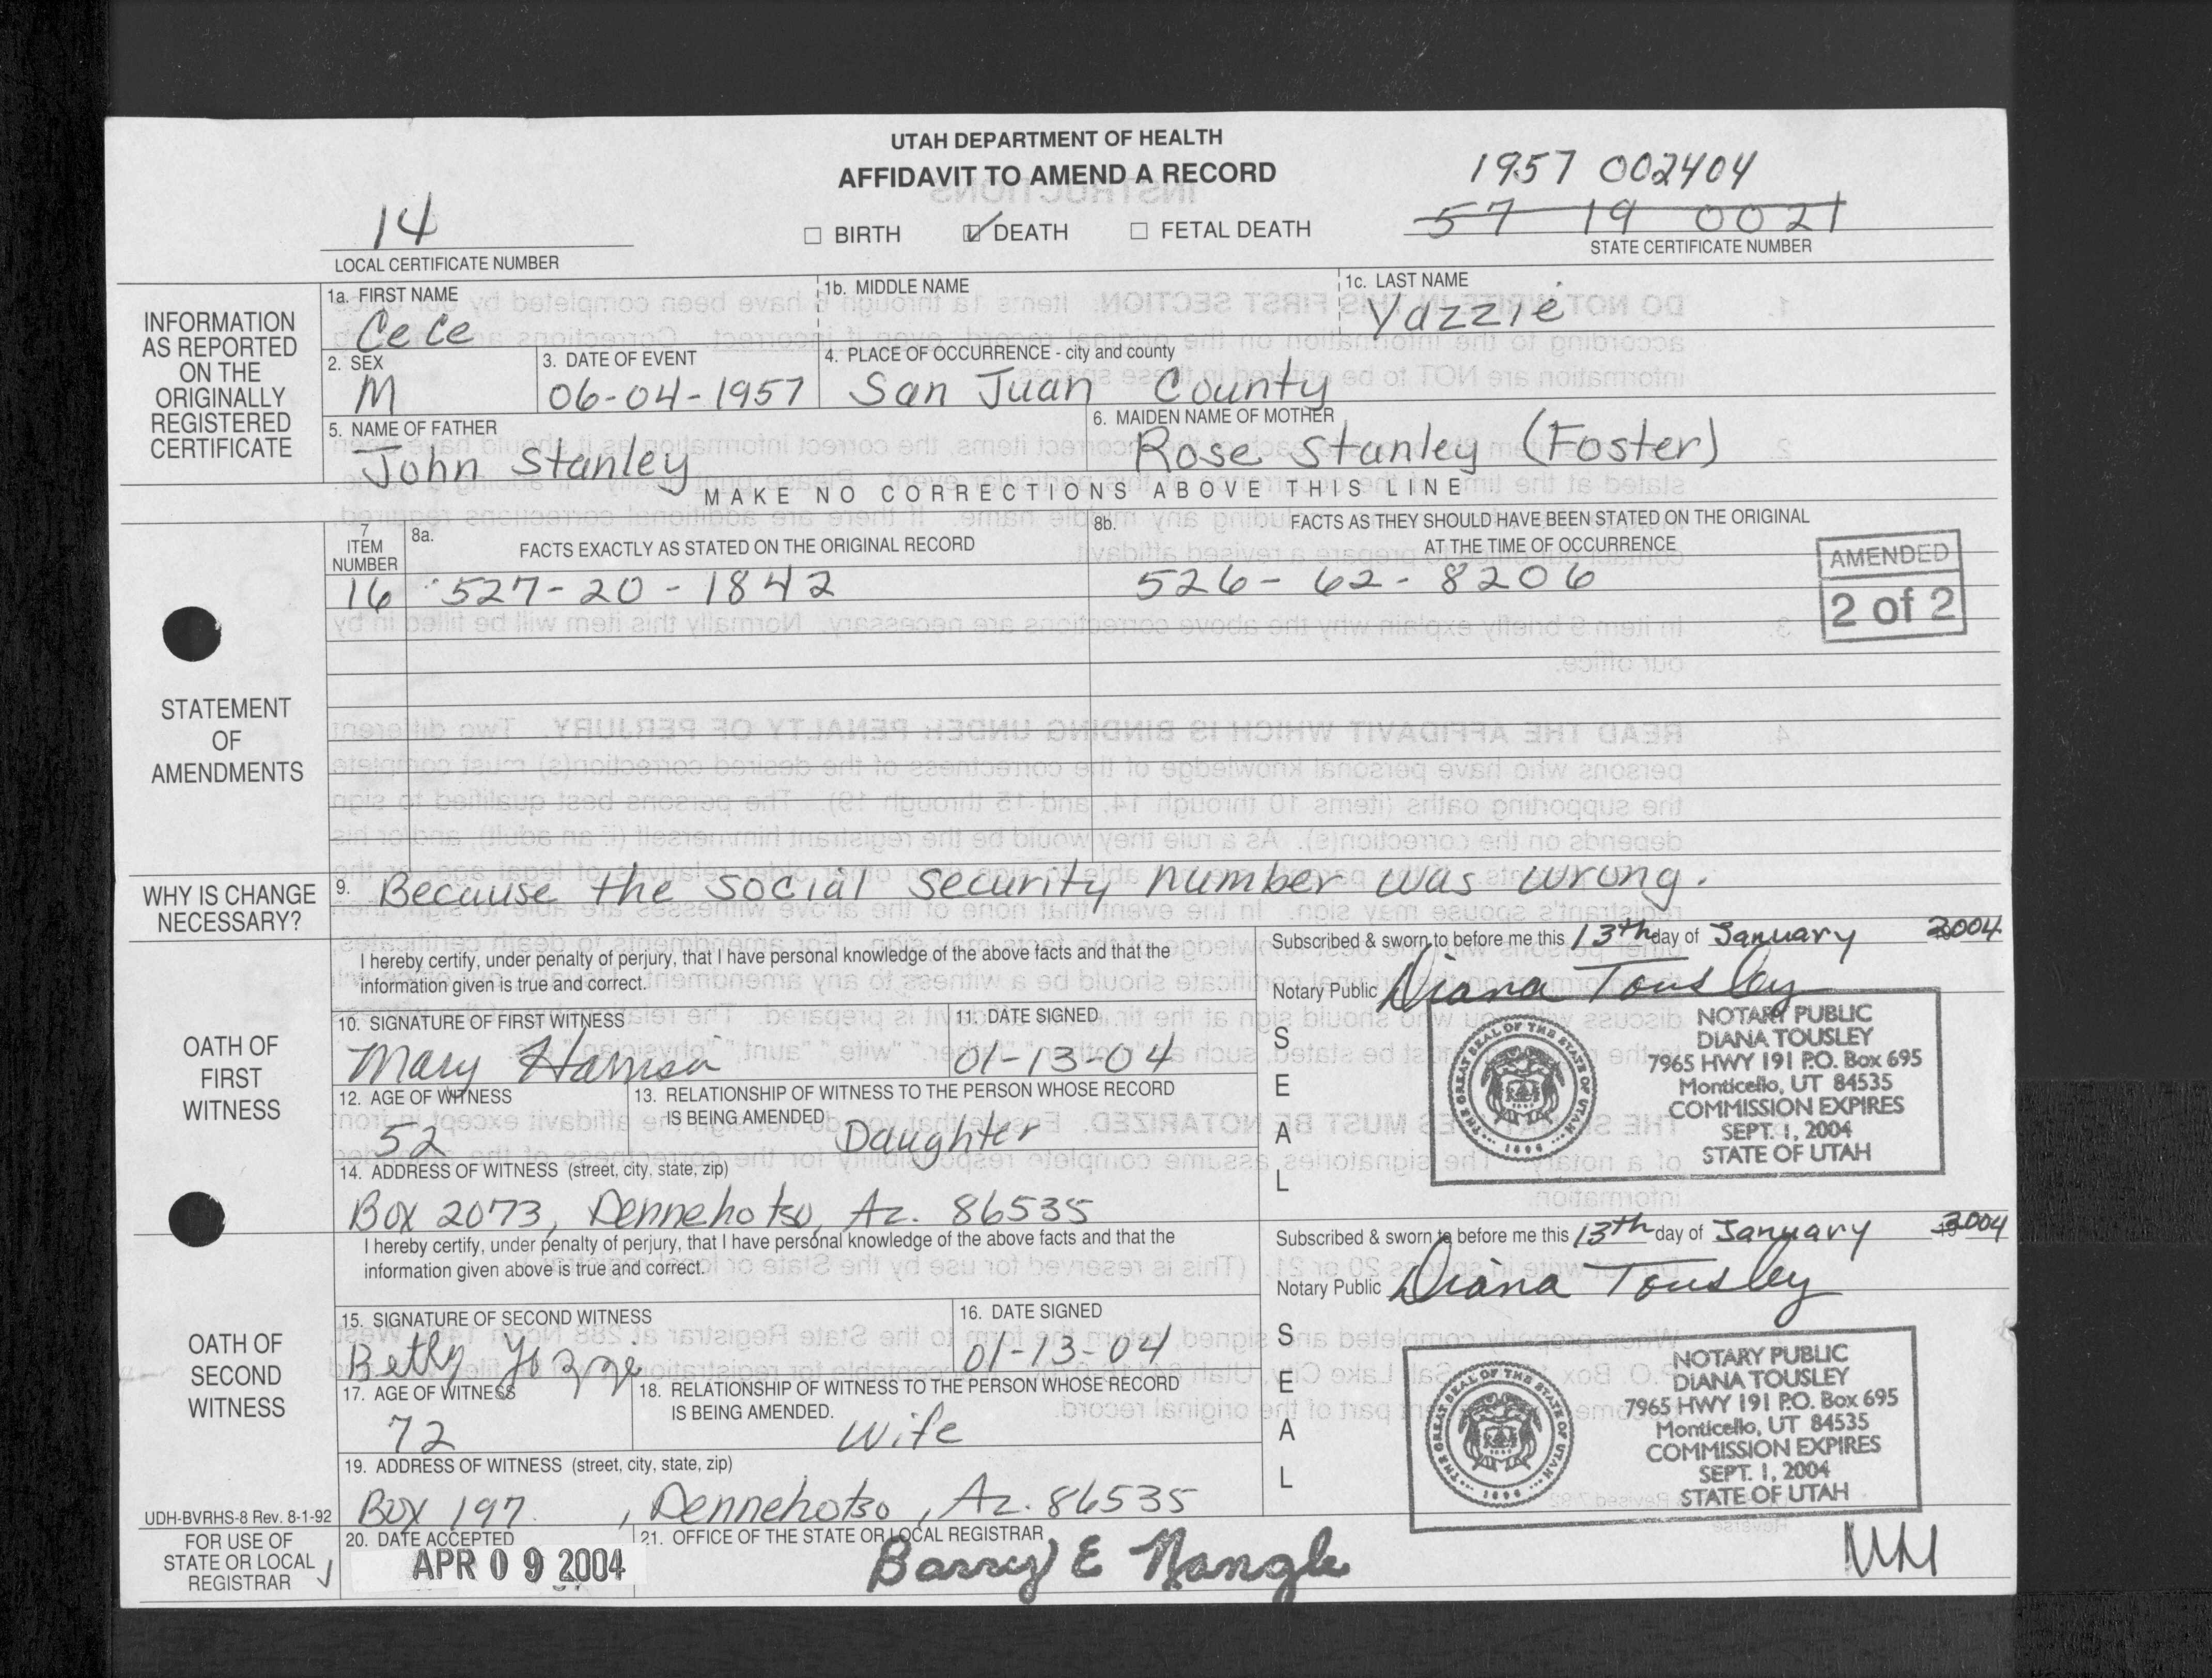 UTAH DEPARTMENT OF HEALTH
AFFIDAVIT TO AMEND A RECORD
1957 002404
14
☐ BIRTH ☑ DEATH ☐ FETAL DEATH
57 19 0021
LOCAL CERTIFICATE NUMBER
STATE CERTIFICATE NUMBER
INFORMATION AS REPORTED ON THE ORIGINALLY REGISTERED CERTIFICATE
1a. FIRST NAME 1b. MIDDLE NAME 1c. LAST NAME
CeCe Yazzie
2. SEX 3. DATE OF EVENT 4. PLACE OF OCCURRENCE - city and county
M 06-04-1957 San Juan County
5. NAME OF FATHER 6. MAIDEN NAME OF MOTHER
John Stanley Rose Stanley (Foster)
MAKE NO CORRECTIONS ABOVE THIS LINE
7 ITEM NUMBER
8a. FACTS EXACTLY AS STATED ON THE ORIGINAL RECORD
8b. FACTS AS THEY SHOULD HAVE BEEN STATED ON THE ORIGINAL
AT THE TIME OF OCCURRENCE
AMENDED
2 of 2
16 527-20-1842 526-62-8206
STATEMENT
OF
AMENDMENTS
WHY IS CHANGE
NECESSARY?
9. Because the social security number was wrong.
OATH OF
FIRST
WITNESS
I hereby certify, under penalty of perjury, that I have personal knowledge of the above facts and that the
information given is true and correct.
Subscribed & sworn to before me this 13th day of January 2004
Notary Public Diana Tousley
10. SIGNATURE OF FIRST WITNESS 11. DATE SIGNED
Mary Harrison 01-13-04
12. AGE OF WITNESS 13. RELATIONSHIP OF WITNESS TO THE PERSON WHOSE RECORD
IS BEING AMENDED
52 Daughter
14. ADDRESS OF WITNESS (street, city, state, zip)
Box 2073, Dennehotso, Az. 86535
SEAL
THE GREAT SEAL OF THE STATE OF UTAH
1896
NOTARY PUBLIC
DIANA TOUSLEY
7965 HWY 191 P.O. Box 695
Monticello, UT 84535
COMMISSION EXPIRES
SEPT. 1, 2004
STATE OF UTAH
OATH OF
SECOND
WITNESS
I hereby certify, under penalty of perjury, that I have personal knowledge of the above facts and that the
information given above is true and correct.
Subscribed & sworn to before me this 13th day of January 2004
Notary Public Diana Tousley
15. SIGNATURE OF SECOND WITNESS 16. DATE SIGNED
Betty Yazzie 01-13-04
17. AGE OF WITNESS 18. RELATIONSHIP OF WITNESS TO THE PERSON WHOSE RECORD
IS BEING AMENDED.
72 Wife
19. ADDRESS OF WITNESS (street, city, state, zip)
Box 197, Dennehotso, Az. 86535
SEAL
THE GREAT SEAL OF THE STATE OF UTAH
1896
NOTARY PUBLIC
DIANA TOUSLEY
7965 HWY 191 P.O. Box 695
Monticello, UT 84535
COMMISSION EXPIRES
SEPT. 1, 2004
STATE OF UTAH
UDH-BVRHS-8 Rev. 8-1-92
FOR USE OF
STATE OR LOCAL
REGISTRAR
20. DATE ACCEPTED 21. OFFICE OF THE STATE OR LOCAL REGISTRAR
APR 09 2004 Barry E Nangle